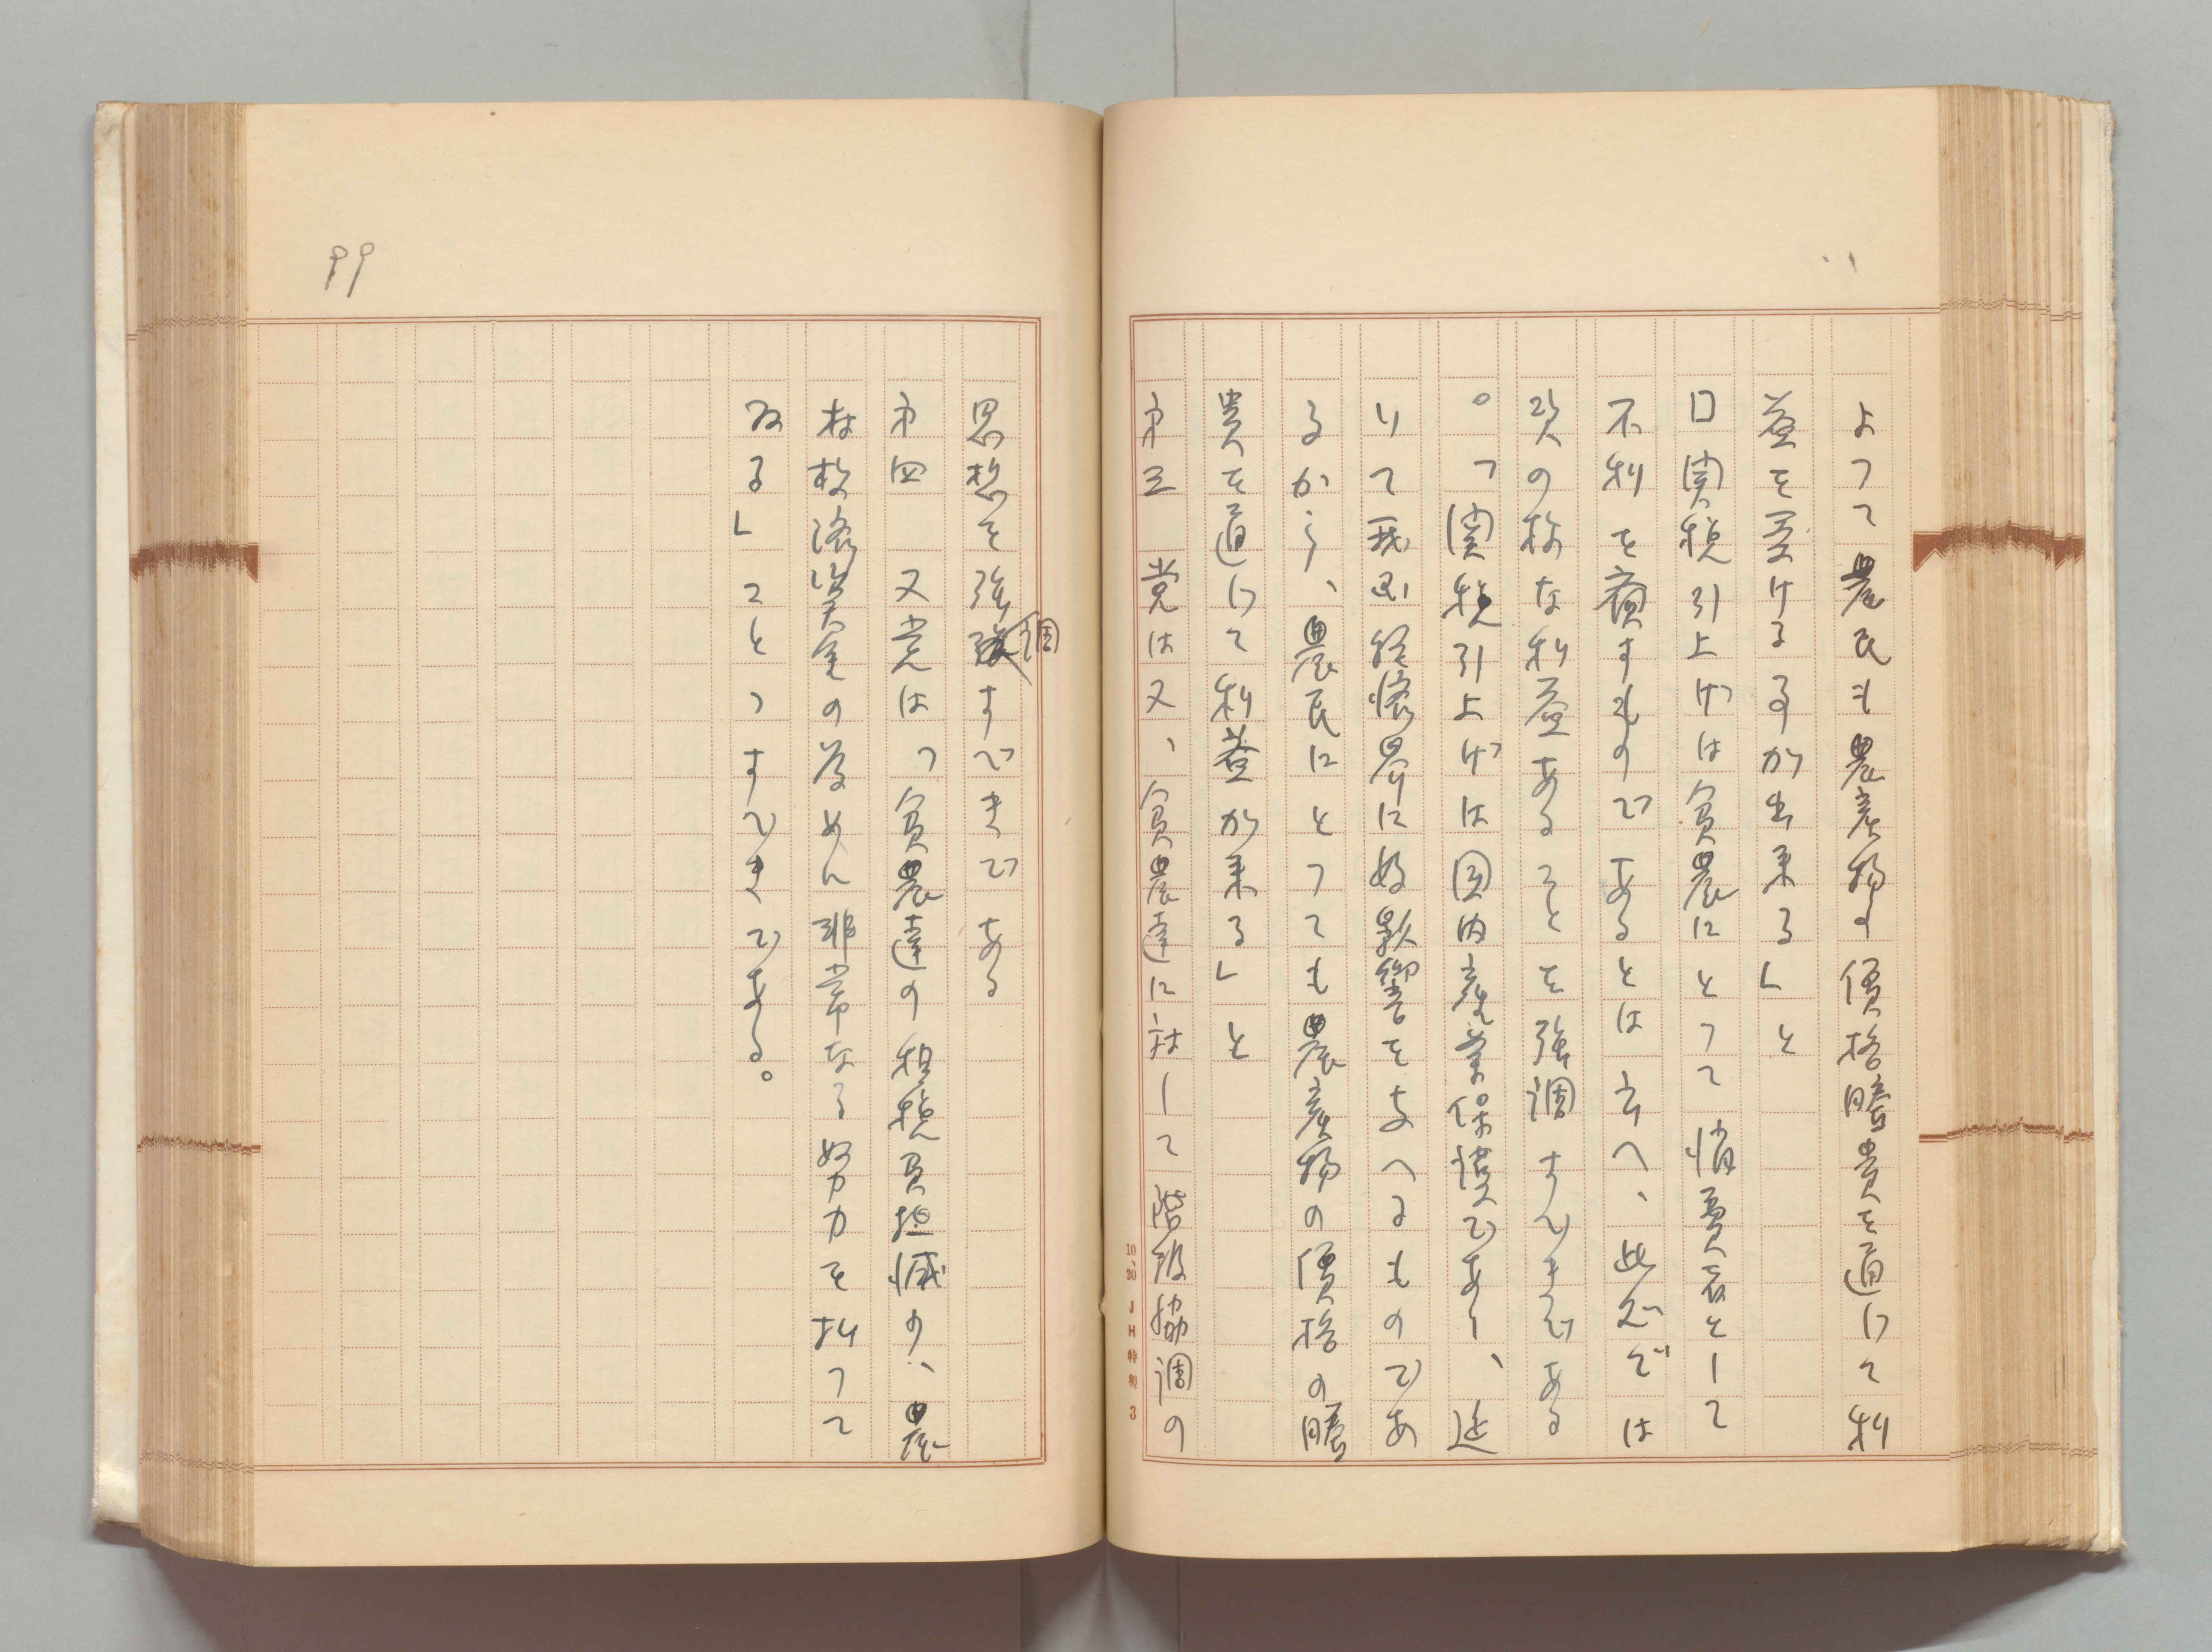 よつて農民も農産物の價格騰貴を通じて利
益を受ける事が出来る」と
口関税引上げは貧農にとつて消費者として
不利を齎すものであるとは云へ、此処では
次の様な利益あることを強調すべきである
。「関税引上げは国内産業保護であり、延
いて我国経済界に好影響を与へるものであ
るから、農民にとつても農産物の價格の騰
貴を通じて利益が来る」と
第三 党は又、貧農達に対して階級協調の
思想を強調すべきである
第四 又党は「貧農達の租税負担減の、農
村救済資金の為めに非常なる努力を払つて
ゐる」ことつすべきである。
99
10、20 JH特製 3